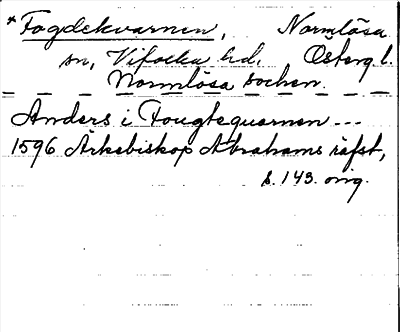 * Fogdekvarnen, Normlösa
sn, Vifolka hd, Österg. l.
Normlösa socken.
Anders i Fougtequarnen ---
1596 Ärkebiskop Abrahams räfst,
s. 143. orig.